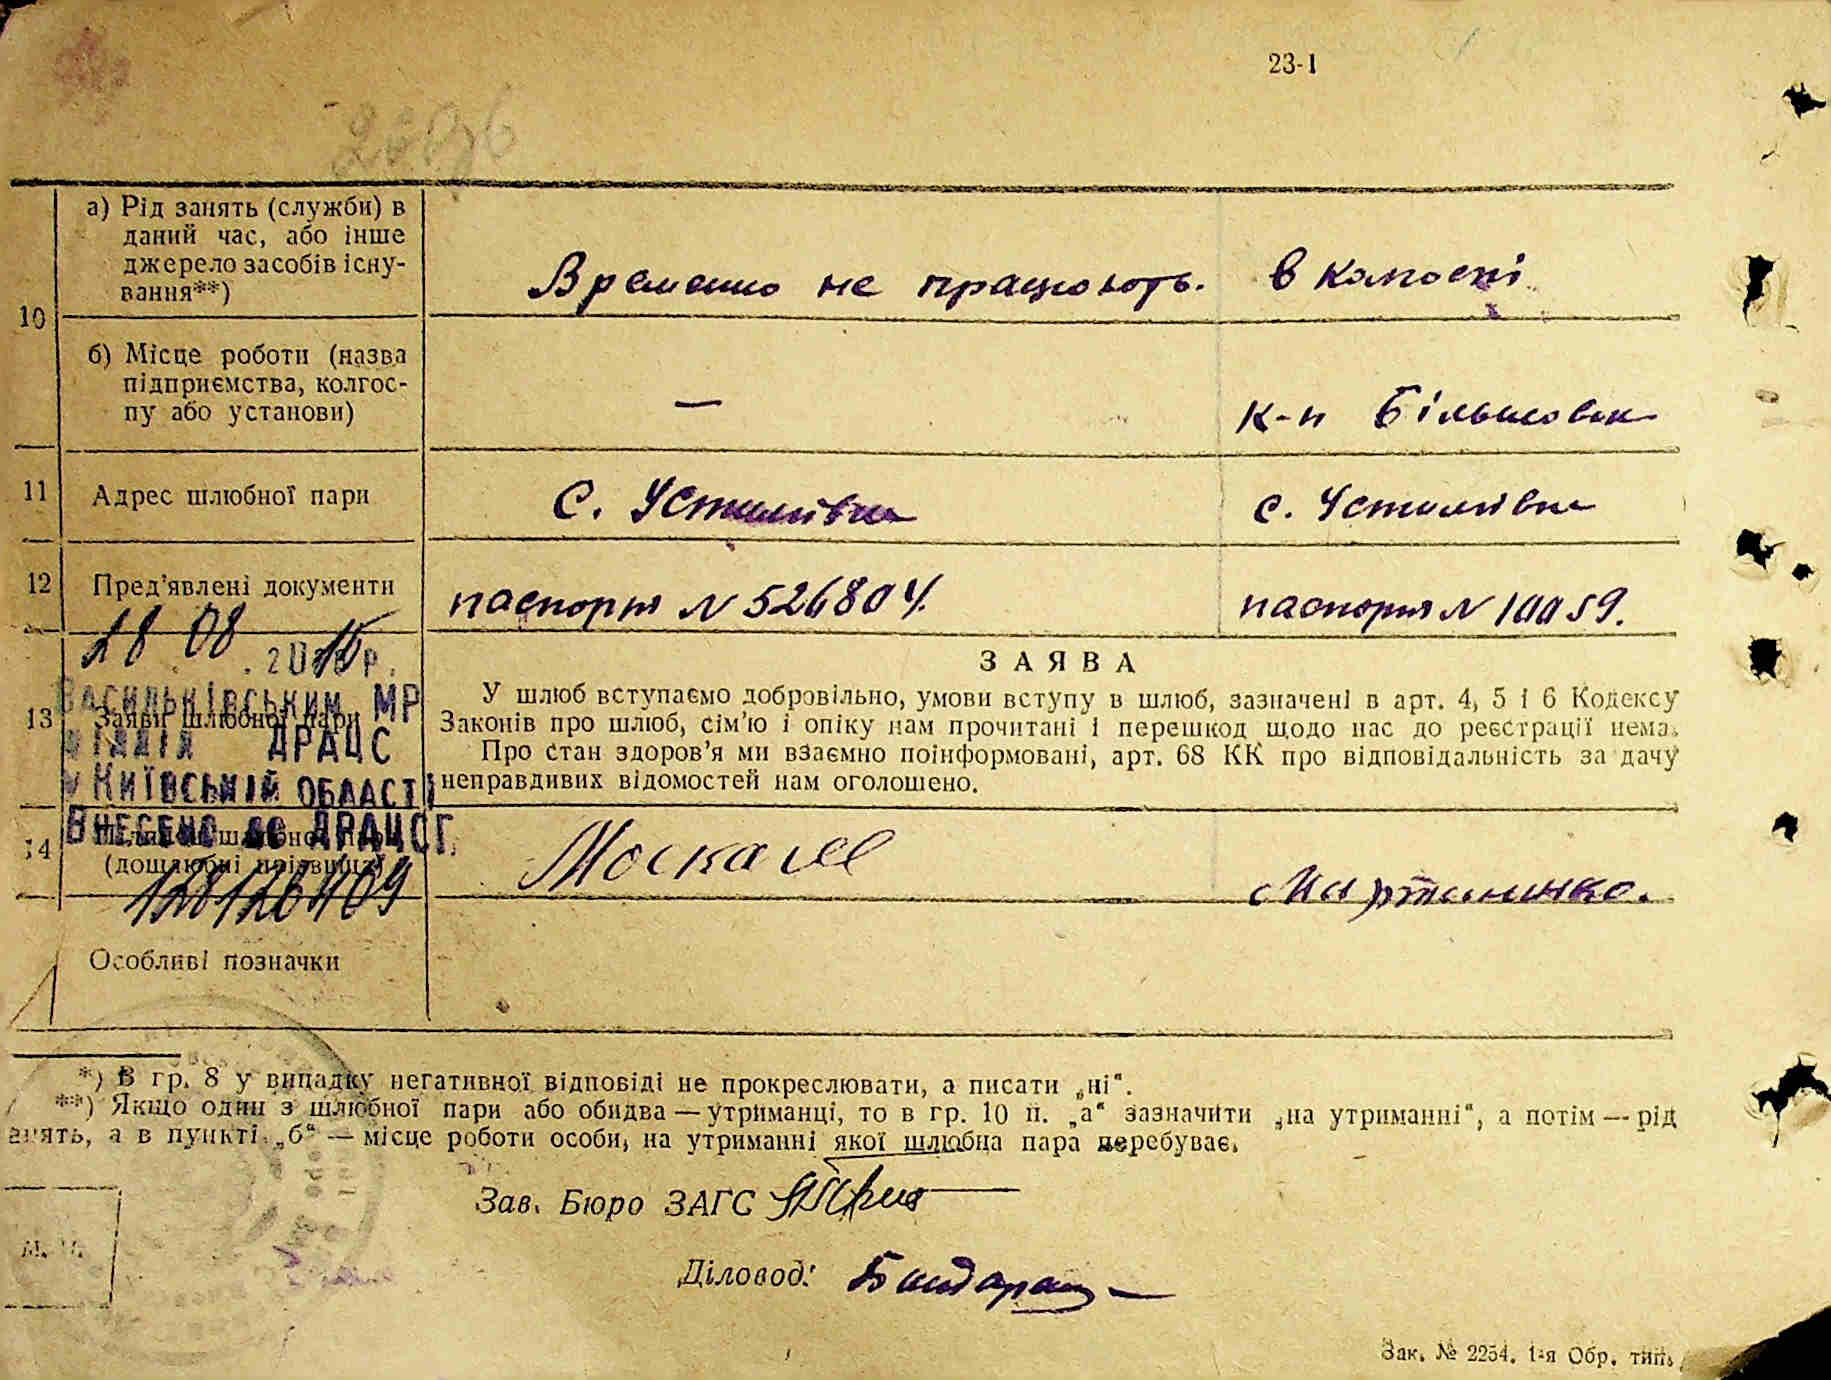 23-1
10
а) Рід занять (служби) в
даний час, або інше
джерело засобів існу-
вання**)
Временно не працюють.
в колгоспі
б) Місце роботи (назва
підприємства, колгос-
пу або установи)
—
к-п Більшовик
11
Адрес шлюбної пари
с. Устимівка
с. Устимівка
12
Пред'явлені документи
паспорт N 526804.
паспорт N 10059.
28 08
Васильківським МР
ДРАЦС
у Київській області
Внесено до ДРАЦСГ.
13
Заяви шлюбної пари
ЗАЯВА
У шлюб вступаємо добровільно, умови вступу в шлюб, зазначені в арт. 4, 5 і 6 Кодексу
Законів про шлюб, сім'ю і опіку нам прочитані і перешкод щодо нас до реєстрації нема.
Про стан здоров'я ми взаємно поінформовані, арт. 68 КК про відповідальність за дачу
неправдивих відомостей нам оголошено.
14
(дошлюбні прізвища)
Москал
Мартиненко.
Особливі позначки
*) В гр. 8 у випадку негативної відповіді не прокреслювати, а писати „ні“.
**) Якщо один з шлюбної пари або обидва — утриманці, то в гр. 10 п. „а“ зазначити „на утриманні“, а потім — рід
занять, а в пункті „б“ — місце роботи особи, на утриманні якої шлюбна пара перебуває.
Зав. Бюро ЗАГС
Діловод:
М. П.
Зак. № 2254. 1-я Обр. тип.